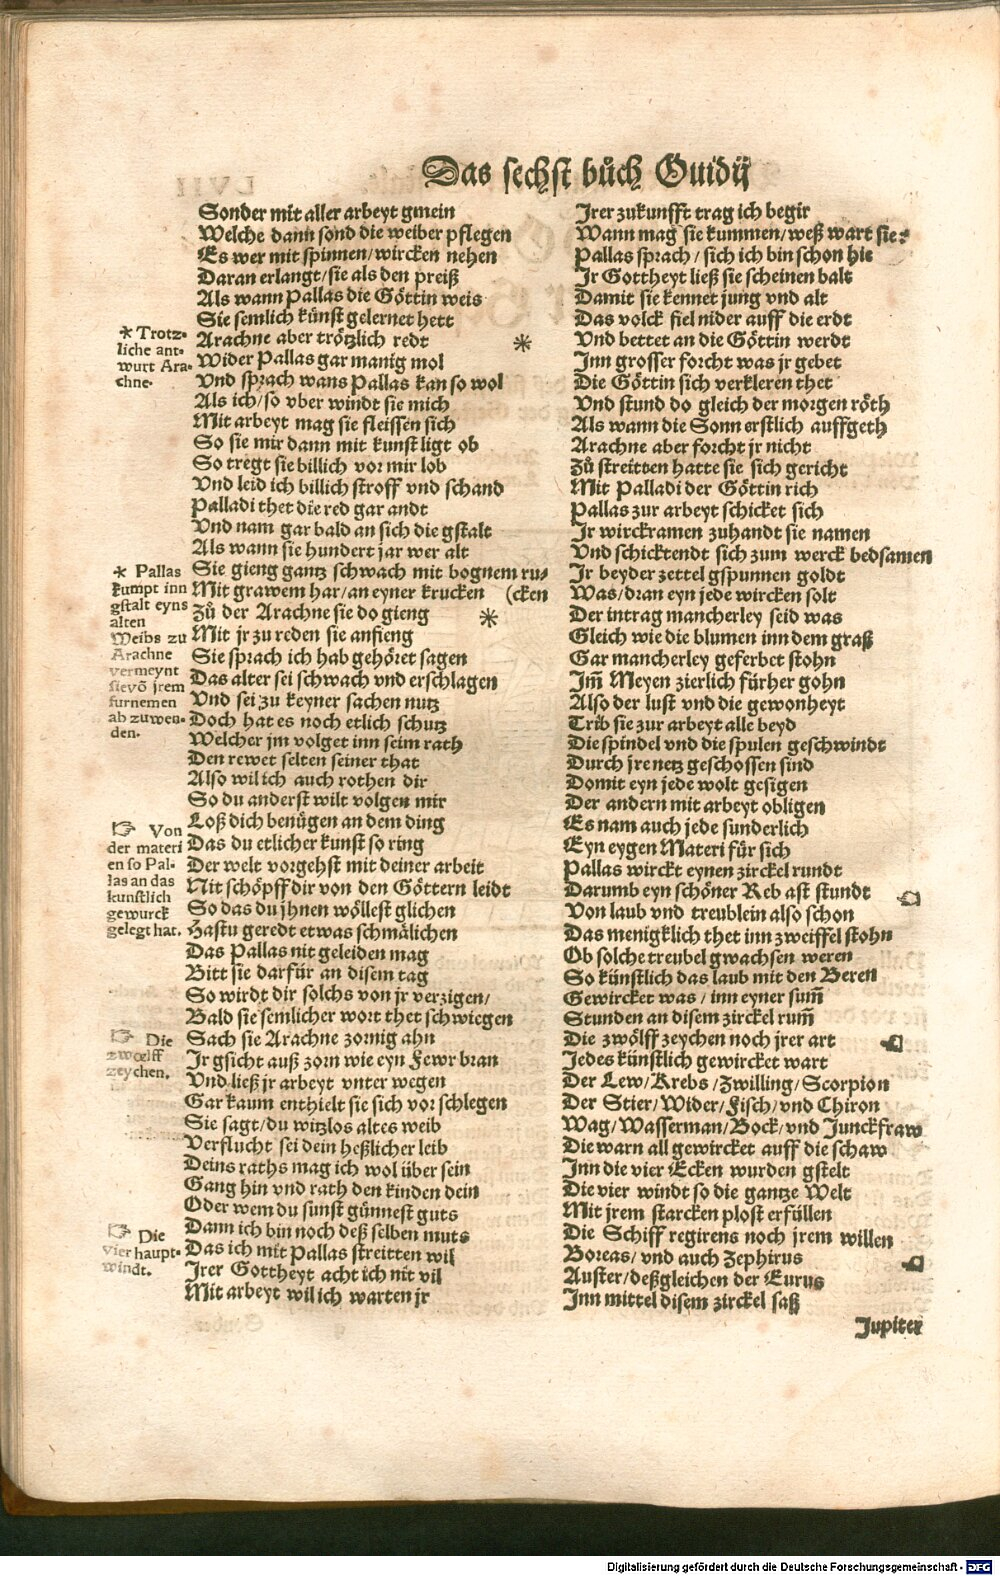 Das sechst bůch Ouidij
Sonder mit aller arbeyt gmein
Welche dann sond die weiber pflegen
Es wer mit spinnen/wircken nehen
Daran erlangt/sie als den preiß
Als wann Pallas die Göttin weis
Sie semlich künst gelernet hett
Arachne aber trötzlich redt *
Wider Pallas gar manig mol
Vnd sprach wans Pallas kan so wol
Als ich/so vber windt sie mich
Mit arbeyt mag sie fleissen sich
So sie mir dann mit kunst ligt ob
So tregt sie billich vor mir lob
Vnd leid ich billich stroff vnd schand
Palladi thet die red gar andt
Vnd nam gar bald an sich die gstalt
Als wann sie hundert jar wer alt
Sie gieng gantz schwach mit bognem ru-
Mit grawem har/an eyner krucken (cken
Zů der Arachne sie do gieng *
Mit jr zu reden sie anfieng
Sie sprach ich hab gehöret sagen
Das alter sei schwach vnd erschlagen
Vnd sei zu keyner sachen nutz
Doch hat es noch etlich schutz
Welcher jm volget inn seim rath
Den rewet selten seiner that
Also wil ich auch rothen dir
So du anderst wilt volgen mir
Loß dich benügen an dem ding
Das du etlicher kunst so ring
Der welt vorgehst mit deiner arbeit
Nit schöpff dir von den Göttern leidt
So das du jhnen wöllest glichen
Hastu geredt etwas schmälichen
Das Pallas nit geleiden mag
Bitt sie darfür an disem tag
So wirdt dir solchs von jr verzigen/
Bald sie semlicher wort thet schwiegen
Sach sie Arachne zornig ahn
Jr gsicht auß zorn wie eyn Fewr bran
Vnd ließ jr arbeyt vnter wegen
Gar kaum enthielt sie sich vor schlegen
Sie sagt/du witzlos altes weib
Verflucht sei dein heßlicher leib
Deins raths mag ich wol über sein
Gang hin vnd rath den kinden dein
Oder wem du sunst günnest guts
Dann ich bin noch deß selben muts
Das ich mit Pallas streitten wil
Jrer Gottheyt acht ich nit vil
Mit arbeyt wil ich warten jr
* Trotz-
liche ant-
wurt Ara-
chne.
* Pallas
kumpt inn
gstalt eyns
alten
Weibs zu
Arachne
vermeynt
sie võ jrem
furnemen
ab zuwen-
den.
☞ Von
der materi
en so Pal-
las an das
kunstlich
gewurck
gelegt hat.
☞ Die
zwoelff
zeychen.
☞ Die
vier haupt-
windt.
Jrer zukunfft trag ich begir
Wann mag sie kummen/weß wart sie?
Pallas sprach/sich ich bin schon hie
Jr Gottheyt ließ sie scheinen balt
Damit sie kennet jung vnd alt
Das volck fiel nider auff die erdt
Vnd bettet an die Göttin werdt
Jnn grosser forcht was jr gebet
Die Göttin sich verkleren thet
Vnd stund do gleich der morgen röth
Als wann die Sonn erstlich auffgeth
Arachne aber forcht jr nicht
Zů streitten hatte sie sich gericht
Mit Palladi der Göttin rich
Pallas zur arbeyt schicket sich
Jr wirckramen zuhandt sie namen
Vnd schicktendt sich zum werck bedsamen
Jr beyder zettel gspunnen goldt
Was/dran eyn jede wircken solt
Der intrag mancherley seid was
Gleich wie die blumen inn dem graß
Gar mancherley geferbet stohn
Jm̃ Meyen zierlich fürher gohn
Also der lust vnd die gewonheyt
Trib sie zur arbeyt alle beyd
Die spindel vnd die spulen geschwindt
Durch jre netz geschossen sind
Domit eyn jede wolt gesigen
Der andern mit arbeyt obligen
Es nam auch jede sunderlich
Eyn eygen Materi für sich
Pallas wirckt eynen zirckel rundt
Darumb eyn schöner Reb ast stundt ☜
Von laub vnd treublein also schon
Das menigklich thet inn zweiffel stohn
Ob solche treubel gwachsen weren
So künstlich das laub mit den Beren
Gewircket was/inn eyner sum̃
Stunden an disem zirckel rum̃
Die zwölff zeychen noch jrer art ☜
Jedes künstlich gewircket wart
Der Lew/Krebs/Zwilling/Scorpion
Der Stier/Wider/Fisch/vnd Chiron
Wag/Wasserman/Bock/vnd Junckfraw
Die warn all gewircket auff die schaw
Jnn die vier Ecken wurden gstelt
Die vier windt so die gantze Welt
Mit jrem starcken plost erfüllen
Die Schiff regirens noch jrem willen
Boreas/vnd auch Zephirus ☜
Auster/deßgleichen der Eurus
Jnn mittel disem zirckel saß
Jupiter
Digitalisierung gefördert durch die Deutsche Forschungsgemeinschaft - DFG